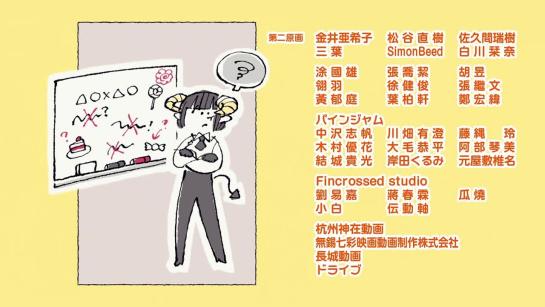 第二原画
金井亜希子 松谷直樹 佐久間瑞樹
三葉 SimonBeed 白川栞奈
涂國雄 張喬絜 胡昱
翎羽 徐健俊 張繼文
黃郁庭 葉柏軒 鄭宏緯
パインジャム
中沢志帆 川畑有澄 藤縄玲
木村優花 大毛恭平 阿部琴美
結城貴光 岸田くるみ 元屋敷椎名
Fincrossed studio
劉易嘉 蔣春霖 瓜燒
小白 伝動軸
杭州神在動画
無錫七彩映画動画制作株式会社
長城動画
ドライブ
△○×△○
?
?